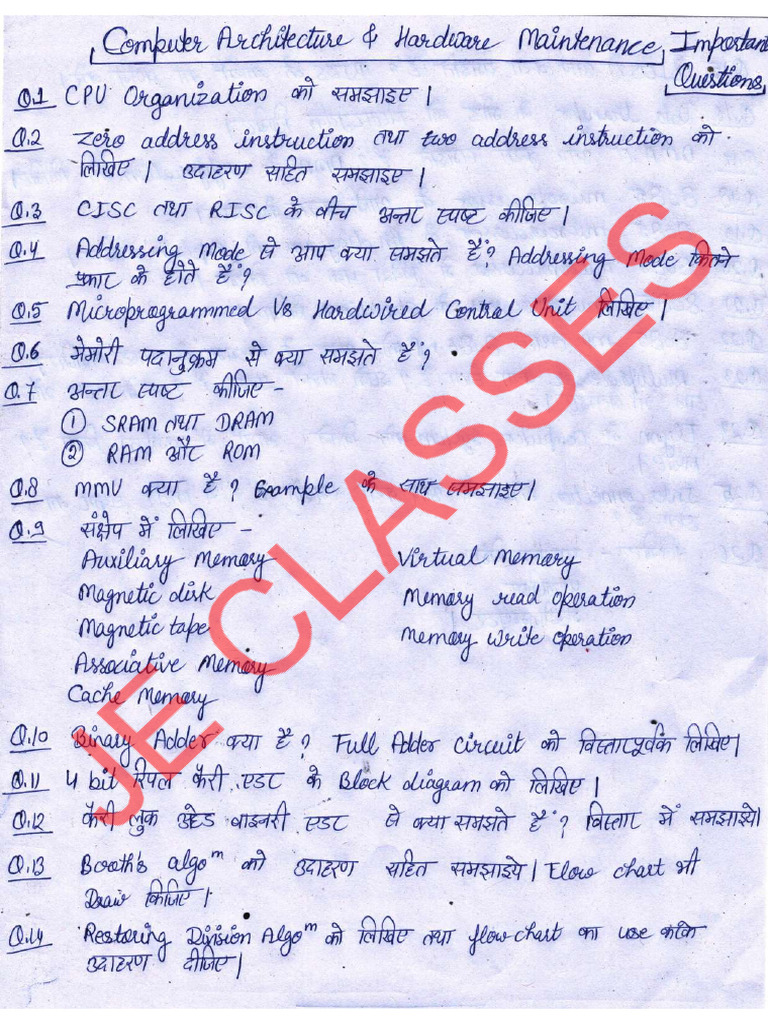 Computer Architecture & Hardware Maintenance Important
Questions
Q.1 CPU Organization को समझाइए।
Q.2 Zero address instruction तथा two address instruction को
लिखिए। उदाहरण सहित समझाइए।
Q.3 CISC तथा RISC के बीच अन्तर स्पष्ट कीजिए।
Q.4 Addressing Mode से आप क्या समझते हैं? Addressing Mode कितने
प्रकार के होते हैं?
Q.5 Microprogrammed Vs Hardwired Control Unit लिखिए।
Q.6 मेमोरी पदानुक्रम से क्या समझते हैं?
Q.7 अन्तर स्पष्ट कीजिए -
① SRAM तथा DRAM
② RAM और ROM
Q.8 MMU क्या है? Example के साथ समझाइए।
Q.9 संक्षेप में लिखिए -
Auxiliary Memory Virtual Memory
Magnetic disk Memory read operation
Magnetic tape Memory write operation
Associative Memory
Cache Memory
Q.10 Binary Adder क्या है? Full Adder Circuit को विस्तारपूर्वक लिखिए।
Q.11 4 bit रिपल कैरी एडर के Block diagram को लिखिए।
Q.12 कैरी लुक अहेड बाइनरी एडर से क्या समझते हैं? विस्तार में समझाइये।
Q.13 Booth's algoᵐ को उदाहरण सहित समझाइये। Flow chart भी
Draw कीजिए।
Q.14 Restoring Division Algoᵐ को लिखिए तथा flowchart का use करके
उदाहरण दीजिए।
JE CLASSES